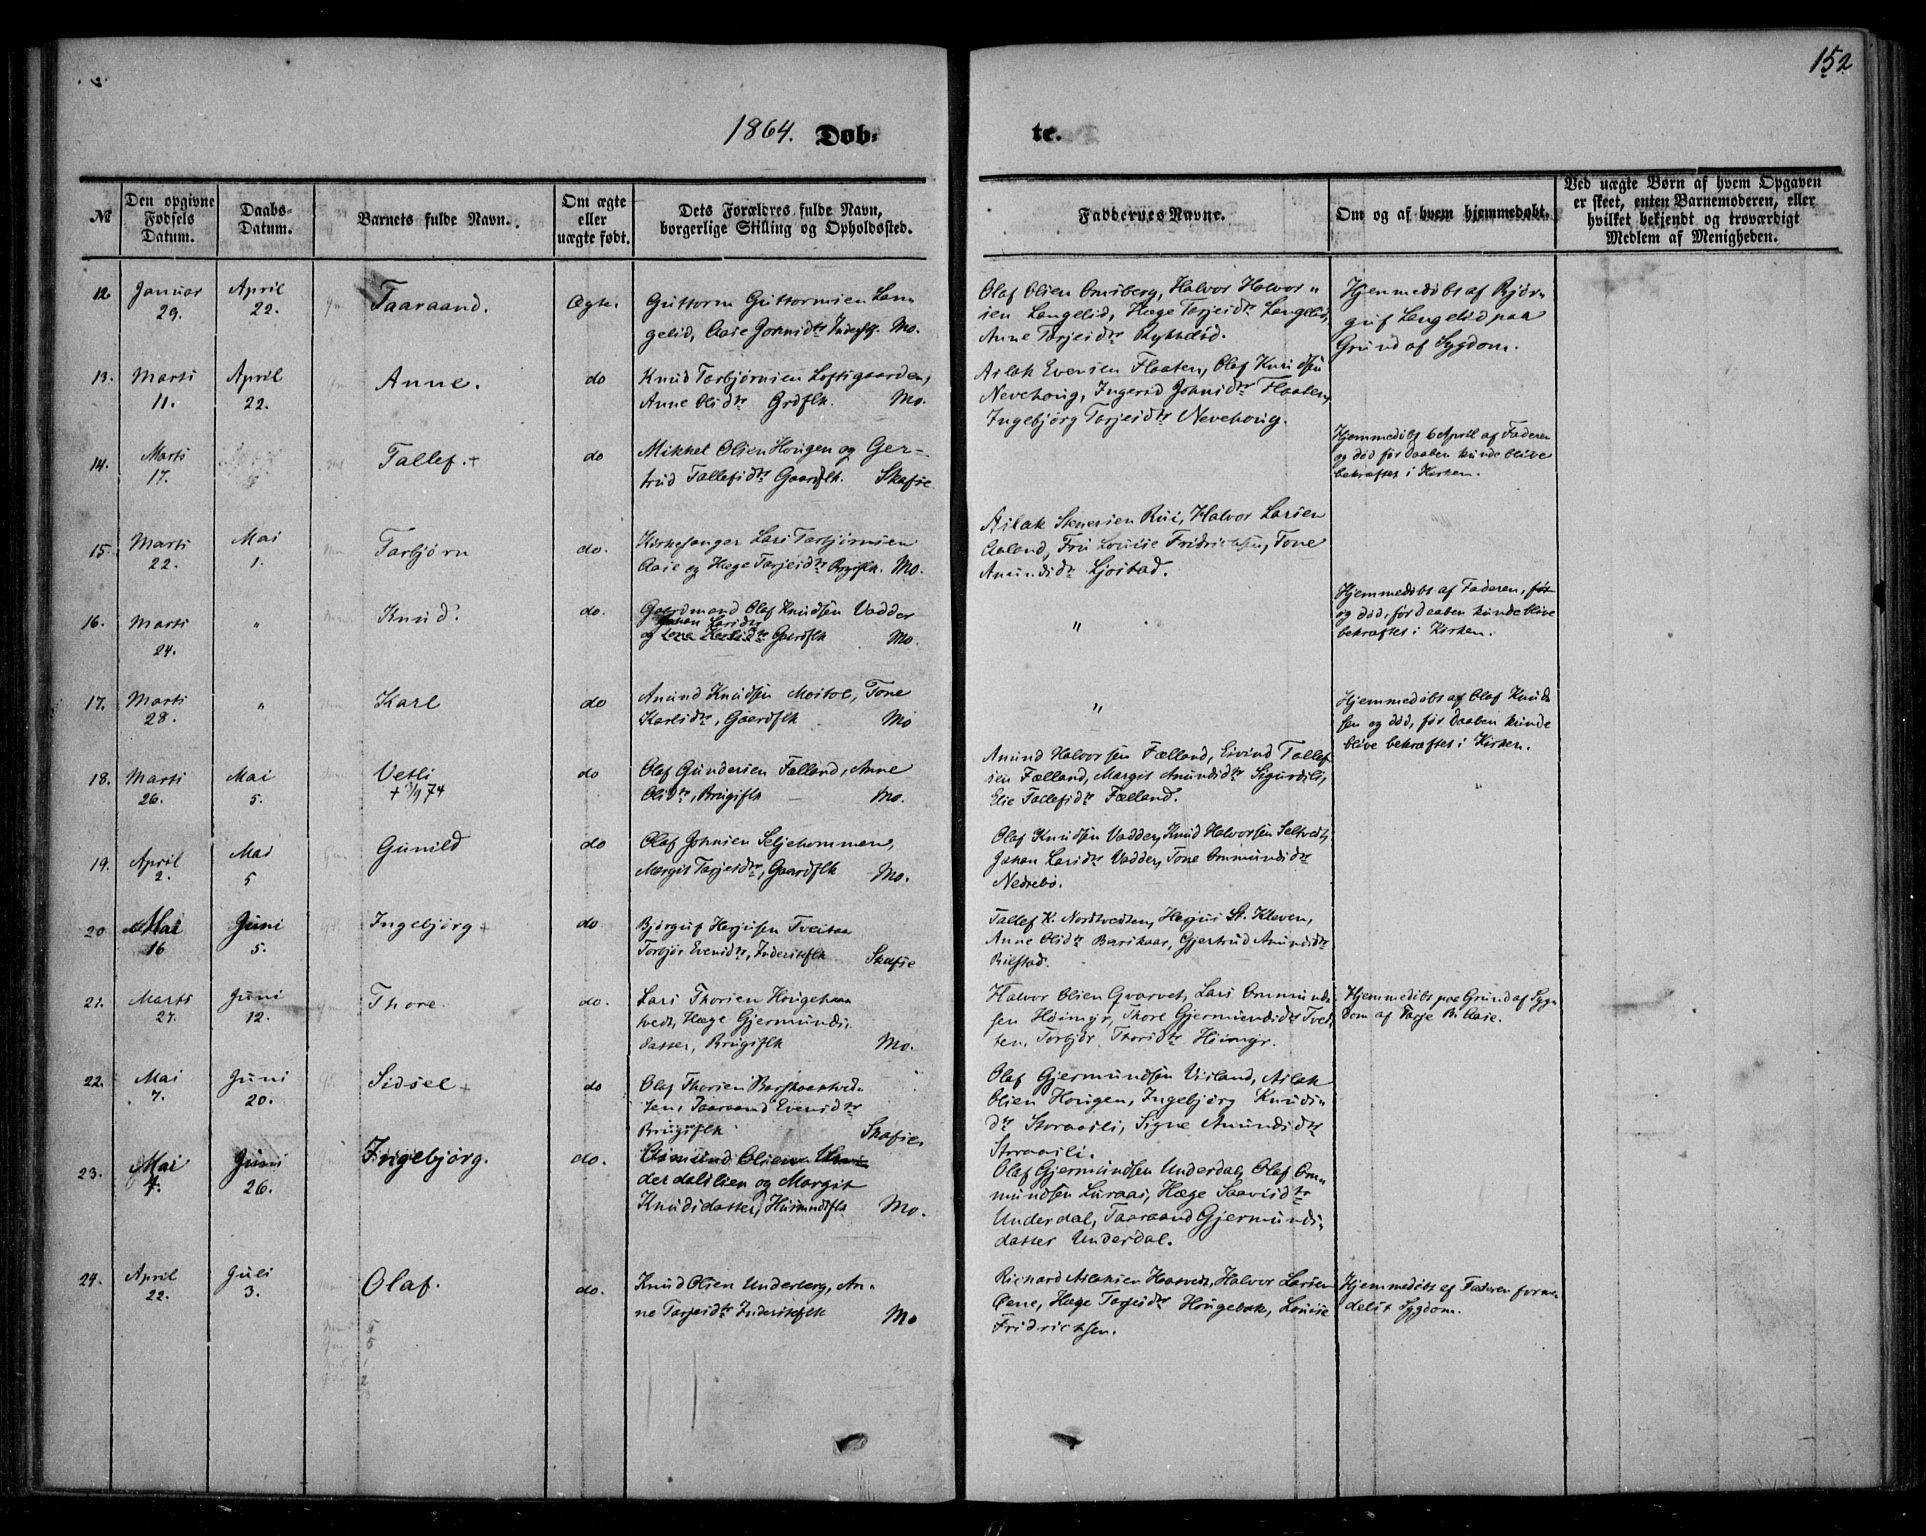 152
1864. Døb-
te.
№
Den opgivne Fødsels Datum.
Daabs-Datum.
Barnets fulde Navn.
Om ægte eller uægte født.
Dets Forældres fulde Navn, borgerlige Stilling og Opholdssted.
Faddernes Navne.
Om og af hvem hjemmedøbt.
Ved uægte Børn af hvem Opgaven er skeet, enten Barnemoderen, eller hvilket bekjendt og troværdigt Medlem af Menigheden.
12. Januar 29. April 22. Taaraand. Ægte.
Guttorm Guttormsen Lan-
gelid, Aase Johnsdtr Inderstf. Mo.
Olaf Olsen Omsberg, Halvor Halvor-
sen Langelid, Hæge Torjeisdtr Langelid,
Anne Torjeisdtr
Hjemmedøbt af Bjør-
guf Langelid paa
Grund af Sygdom.
13. Marts 11. April 22. Anne. do
Knud Torbjørnsen Loftsgaarden,
Anne Olsdtr Grdflk. Mo.
Aslak Evensen Flaaten, Olaf Knudsen
Nevehoug, Ingerid Johnsdtr Flaaten,
Ingebjørg Torjeisdtr Nevehoug.
14. Marts 17. Tallef. + do
Mikkel Olsen Hougen og Ger-
trud Tallefsdtr Gaardflk. Skafse
Hjemmedøbt 6 April af Faderen
og død før Daaben kunde blive
bekræftet i Kirken.
15. Marts 22. Mai 1. Torbjørn do.
Kirkesanger Lars Torbjørnsen
Aase og Hæge Torjeisdtr Brgsflk. Mo.
Aslak Stenersen Rui, Halvor Larsen
Aaland, Fru Louise Fridrichsen, Tone
Amundsdtr Ljostad.
16. Marts 24. " Knud. do.
Gaardmand Olaf Knudsen Vadder
Johan Larsdtr
og Gaardflk Mo.
"
Hjemmedøbt af Faderen, før
og død, før Daaben kunde blive
bekræftet i Kirken.
17. Marts 28. " Karl do
Amund Knudsen Moitol, Tone
Karlsdtr, Gaardflk Mo
"
Hjemmedøbt af Olaf Knud-
sen og død, før Daaben kunde
blive bekræftet i Kirken.
18. Marts 26. Mai 5. Vetli do
+ 3/9 74
Olaf Gundersen Fælland, Anne
Olsdtr, Brugsflk Mo.
Amund Halvorsen Fælland, Eivind Tallef-
sen Fælland, Margit Amundsdtr Sigurdsli,
Elie Tallefsdtr Fælland.
19. April 2. Mai 5 Gunild do
Olaf Johnsen Seljehommen,
Margit Torjeisdtr, Gaardflk Mo.
Olaf Knudsen Vadder, Knud Halvorsen Seltvedt,
Johan Larsdtr Vadder, Tone Ommundsdtr
Nedrebø.
20 Mai 16 Juni 5. Ingebjørg + do
Bjørguf Herjusen Tveitaa
Torbjør Evensdtr, Inderstflk Skafse
Tallef K. Nordtvedten, Herjus St. Kleven,
Anne Olsdtr Barskaar, Gjertrud Amundsdtr
Rilstad.
21. Marts 27. Juni 12. Thore. do.
Lars Thorsen Hougetuu
tvedt, Hæge Gjermunds-
datter, Brugsflk Mo.
Halvor Olsen Qvarvet, Lars Ommund-
sen Høimyr, Thore Gjermundsdtr Tved-
ten, Torbjør Thorsdtr Høimyr.
Hjemmedøbt paa Grund af Syg-
dom af Torje B. Aase.
22. Mai 7. Juni 20. Sidsel + do
Olaf Thorsen Barskaartved-
ten, Taaraand Evensdtr
Brugsflk Skafse,
Olaf Gjermundsen Visland, Aslak
Olsen Hougen, Ingebjørg Knuds-
dtr Storaasli, Signe Amundsdtr
Storaasli.
23. Mai 4. Juni 26. Ingebjørg. do.
Osmund Olsen Un-
derdalslien og Margit
Knudsdatter, Husmndsflk Mo.
Olaf Gjermundsen Underdal, Olaf Om-
mundsen Luraas, Hæge Saavisdtr
Underdal, Taaraand Gjermunds-
datter Underdal.
24. April 22. Juli 3. Olaf. do.
Knud Olsen Underberg, An-
ne Torjeisdtr Inderstflk Mo
Richard Aslaksen Haatvedt, Halvor Larsen
Øene, Hæge Torjeisdtr Hougebak, Louise
Fridrichsen.
Hjemmedøbt af Faderen forme-
delst Sygdom.
5
5
1
2